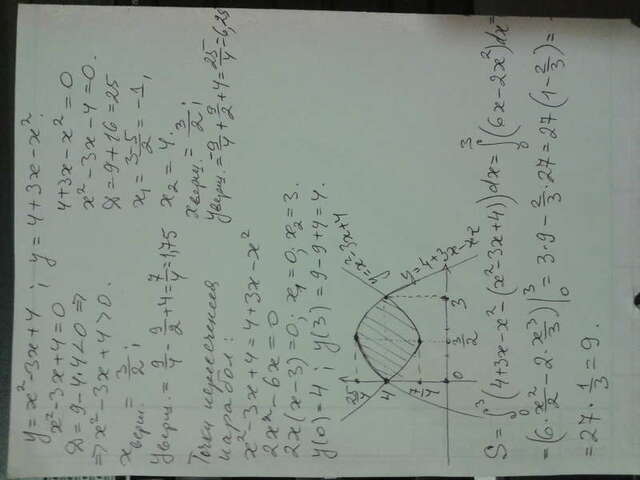 y = x² - 3x + 4 ; y = 4 + 3x - x²
x² - 3x + 4 = 0
D = 9 - 4·4 < 0 ⇒
⇒ x² - 3x + 4 > 0.
x верш. = 3/2 ;
y верш. = 9/4 - 9/2 + 4 = 7/4 = 1,75
4 + 3x - x² = 0
x² - 3x - 4 = 0.
D = 9 + 16 = 25
x₁ = (3-5)/2 = -1,
x₂ = 4.
x верш. = 3/2 ;
y верш. = -9/4 + 9/2 + 4 = 25/4 = 6,25
Точки пересечения
парабол:
x² - 3x + 4 = 4 + 3x - x²
2x² - 6x = 0
2x(x-3) = 0; x₁ = 0; x₂ = 3.
y(0) = 4 ; y(3) = 9 - 9 + 4 = 4.
y = x² - 3x + 4
y = 4 + 3x - x²
25/4
4
7/4
0
3/2
3
S = ∫₀³ (4 + 3x - x² - (x² - 3x + 4)) dx = ∫₀³ (6x - 2x²) dx =
= (6 · x²/2 - 2 · x³/3) |₀³ = 3·9 - 2/3 · 27 = 27 (1 - 2/3) =
= 27 · 1/3 = 9.